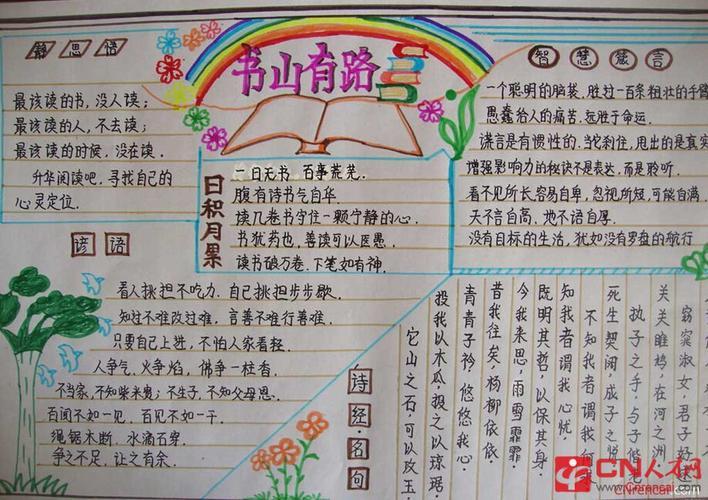 书山有路
静思悟
最该读的书,没人读;
最该读的人,不去读;
最该读的时候,没在读.
升华阅读吧,寻找自己的
心灵定位.
日积月累
一日无书 百事荒芜.
腹有诗书气自华.
读几卷书守住一颗宁静的心.
书犹药也,善读可以医愚.
读书破万卷.下笔如有神.
智慧箴言
一个聪明的脑袋,胜过一百条粗壮的手臂
愚蠢给人的痛苦.远胜于命运.
谎言是有惯性的.当刹住,甩出的是真实
增强影响力的秘诀不是表达,而是聆听.
看不见所长.容易自卑,忽视所短,可能自满
天不言自高、地不语自厚.
没有目标的生活,犹如没有罗盘的航行
谚语
看人挑担不吃力.自己挑担步步歇.
知过不难改过难,言善不难行善难.
只要自己上进,不怕人家看轻.
人争气,火争焰,佛争一柱香.
不当家,不知柴米贵;不生子,不知父母恩.
百闻不如一见.百见不如一干.
绳锯木断.水滴石穿.
争之不足,让之有余.
诗经名句
窈窕淑女,君子好
关关雎鸠,在河之洲
执子之手,与子偕
死生契阔,成子之悦
不知我者谓我何
知我者谓我心忧
既明其哲,以保其身.
今我来思,雨雪霏霏
昔我往矣,杨柳依依.
青青子衿,悠悠我心.
投我以木瓜,投之以琼琚.
它山之石,可以攻玉.
CN人才网
www.Cnrencai.com
CNrencai.com